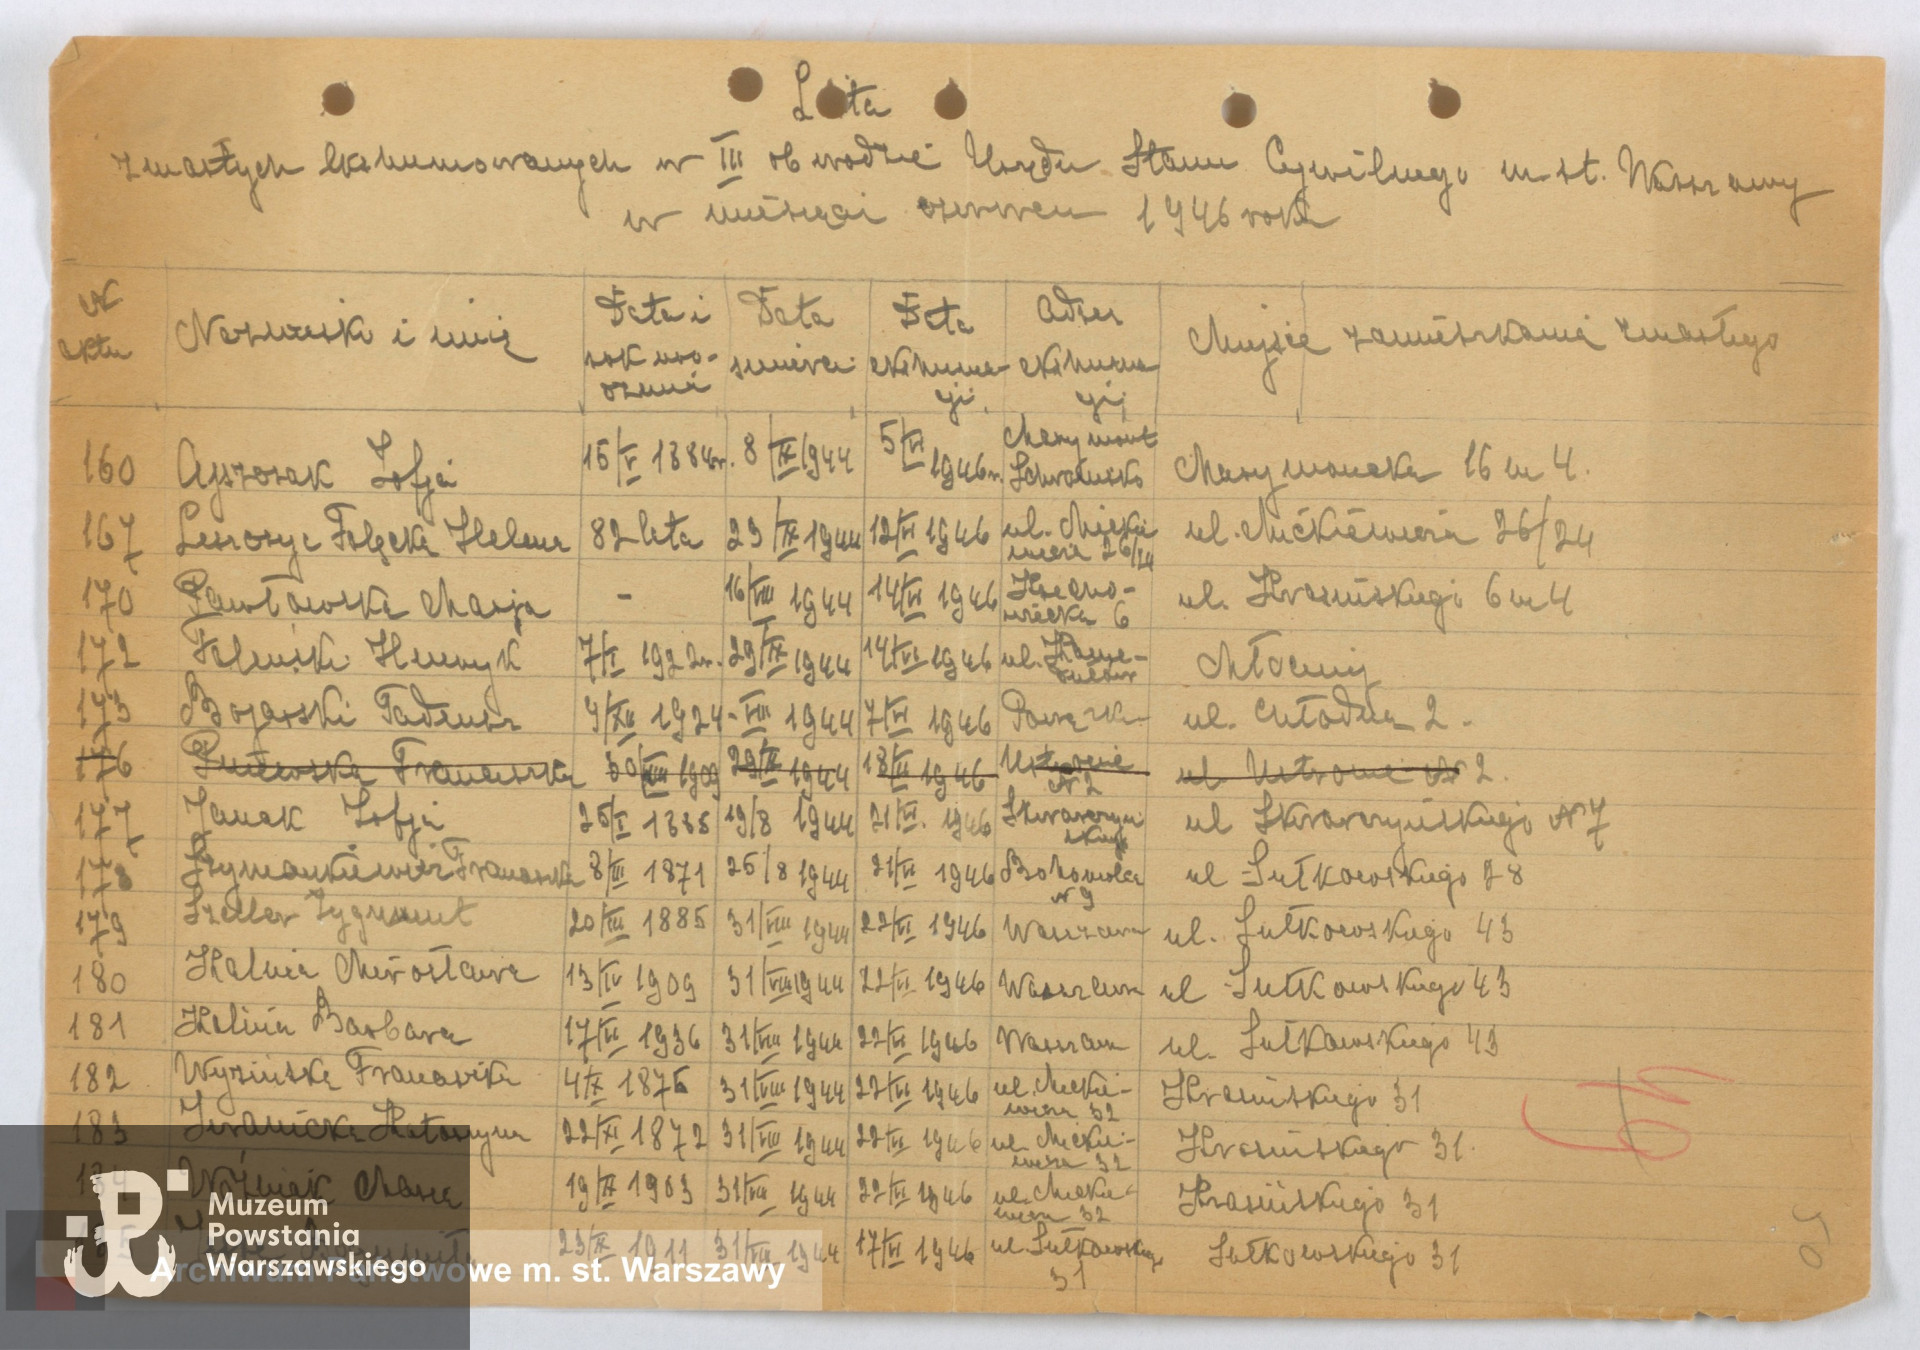 Lista
zmarłych ekshumowanych w III obwodzie Urzędu Stanu Cywilnego m st. Warszawy
w miesiącu czerwcu 1946 roku
Nr aktu Nazwisko i imię Data i rok uro-dzenia Data śmierci Data ekshuma-cji Adres ekshuma-cji Miejsce zamieszkania zmarłego
160 Zofja 15/V 1884r. 8/IX 1944 5/VI 1946r. Marymont Schronisko Marymoncka 16 m 4.
167 Helena 82 lata 23/IX 1944 12/VI 1946 ul. Mickiewicza 26/24 ul. Mickiewicza 26/24
170 Pawłowska Marja - 16/VIII 1944 14/VI 1946 6 ul. Krasińskiego 6 m 4
172 Henryk 7/I 1922r. 29/IX 1944 14/VI 1946 ul. Młociny
173 Bojarski Tadeusz 4/XII 1924 - VIII 1944 7/VI 1946 Powązki ul. Młodna 2.
176 Franciszka 30/VIII 1909 29/IX 1944 18/VI 1946 Ustronie Nr 2 ul Ustronie Nr 2.
177 Janak Zofja 25/I 1885 19/8 1944 21/VI. 1946 Skwarczyńskiego ul Skwarczyńskiego Nr 7
178 Szymankiewicz Franciszka 8/III 1871 25/8 1944 21/VI 1946 Bohomolca Nr 9 ul Sułkowskiego 28
179 Szeller Zygmunt 20/III 1885 31/VIII 1944 22/VI 1946 Warszawa ul. Sułkowskiego 43
180 Kalnia Mirosława 13/IV 1909 31/VIII 1944 22/VI 1946 Warszawa ul Sułkowskiego 43
181 Barbara 17/VI 1936 31/VIII 1944 22/VI 1946 Warszawa ul. Sułkowskiego 43
182 Wyzińska Franciszka 4/X 1875 31/VIII 1944 22/VI 1946 ul. Mickiewicza 32 Krasińskiego 31
183 Iwanicka Katarzyna 22/XI 1872 31/VIII 1944 22/VI 1946 ul. Mickiewicza 32 Krasińskiego 31.
184 Woźniak Maria 19/IX 1903 31/VIII 1944 22/VI 1946 ul. Mickiewicza 32 Krasińskiego 31
185 23/X 1911 31/VIII 1944 17/VI 1946 ul. Sułkowskiego 31 Sułkowskiego 31
Muzeum
Powstania
Warszawskiego
Archiwum Państwowe m. st. Warszawy